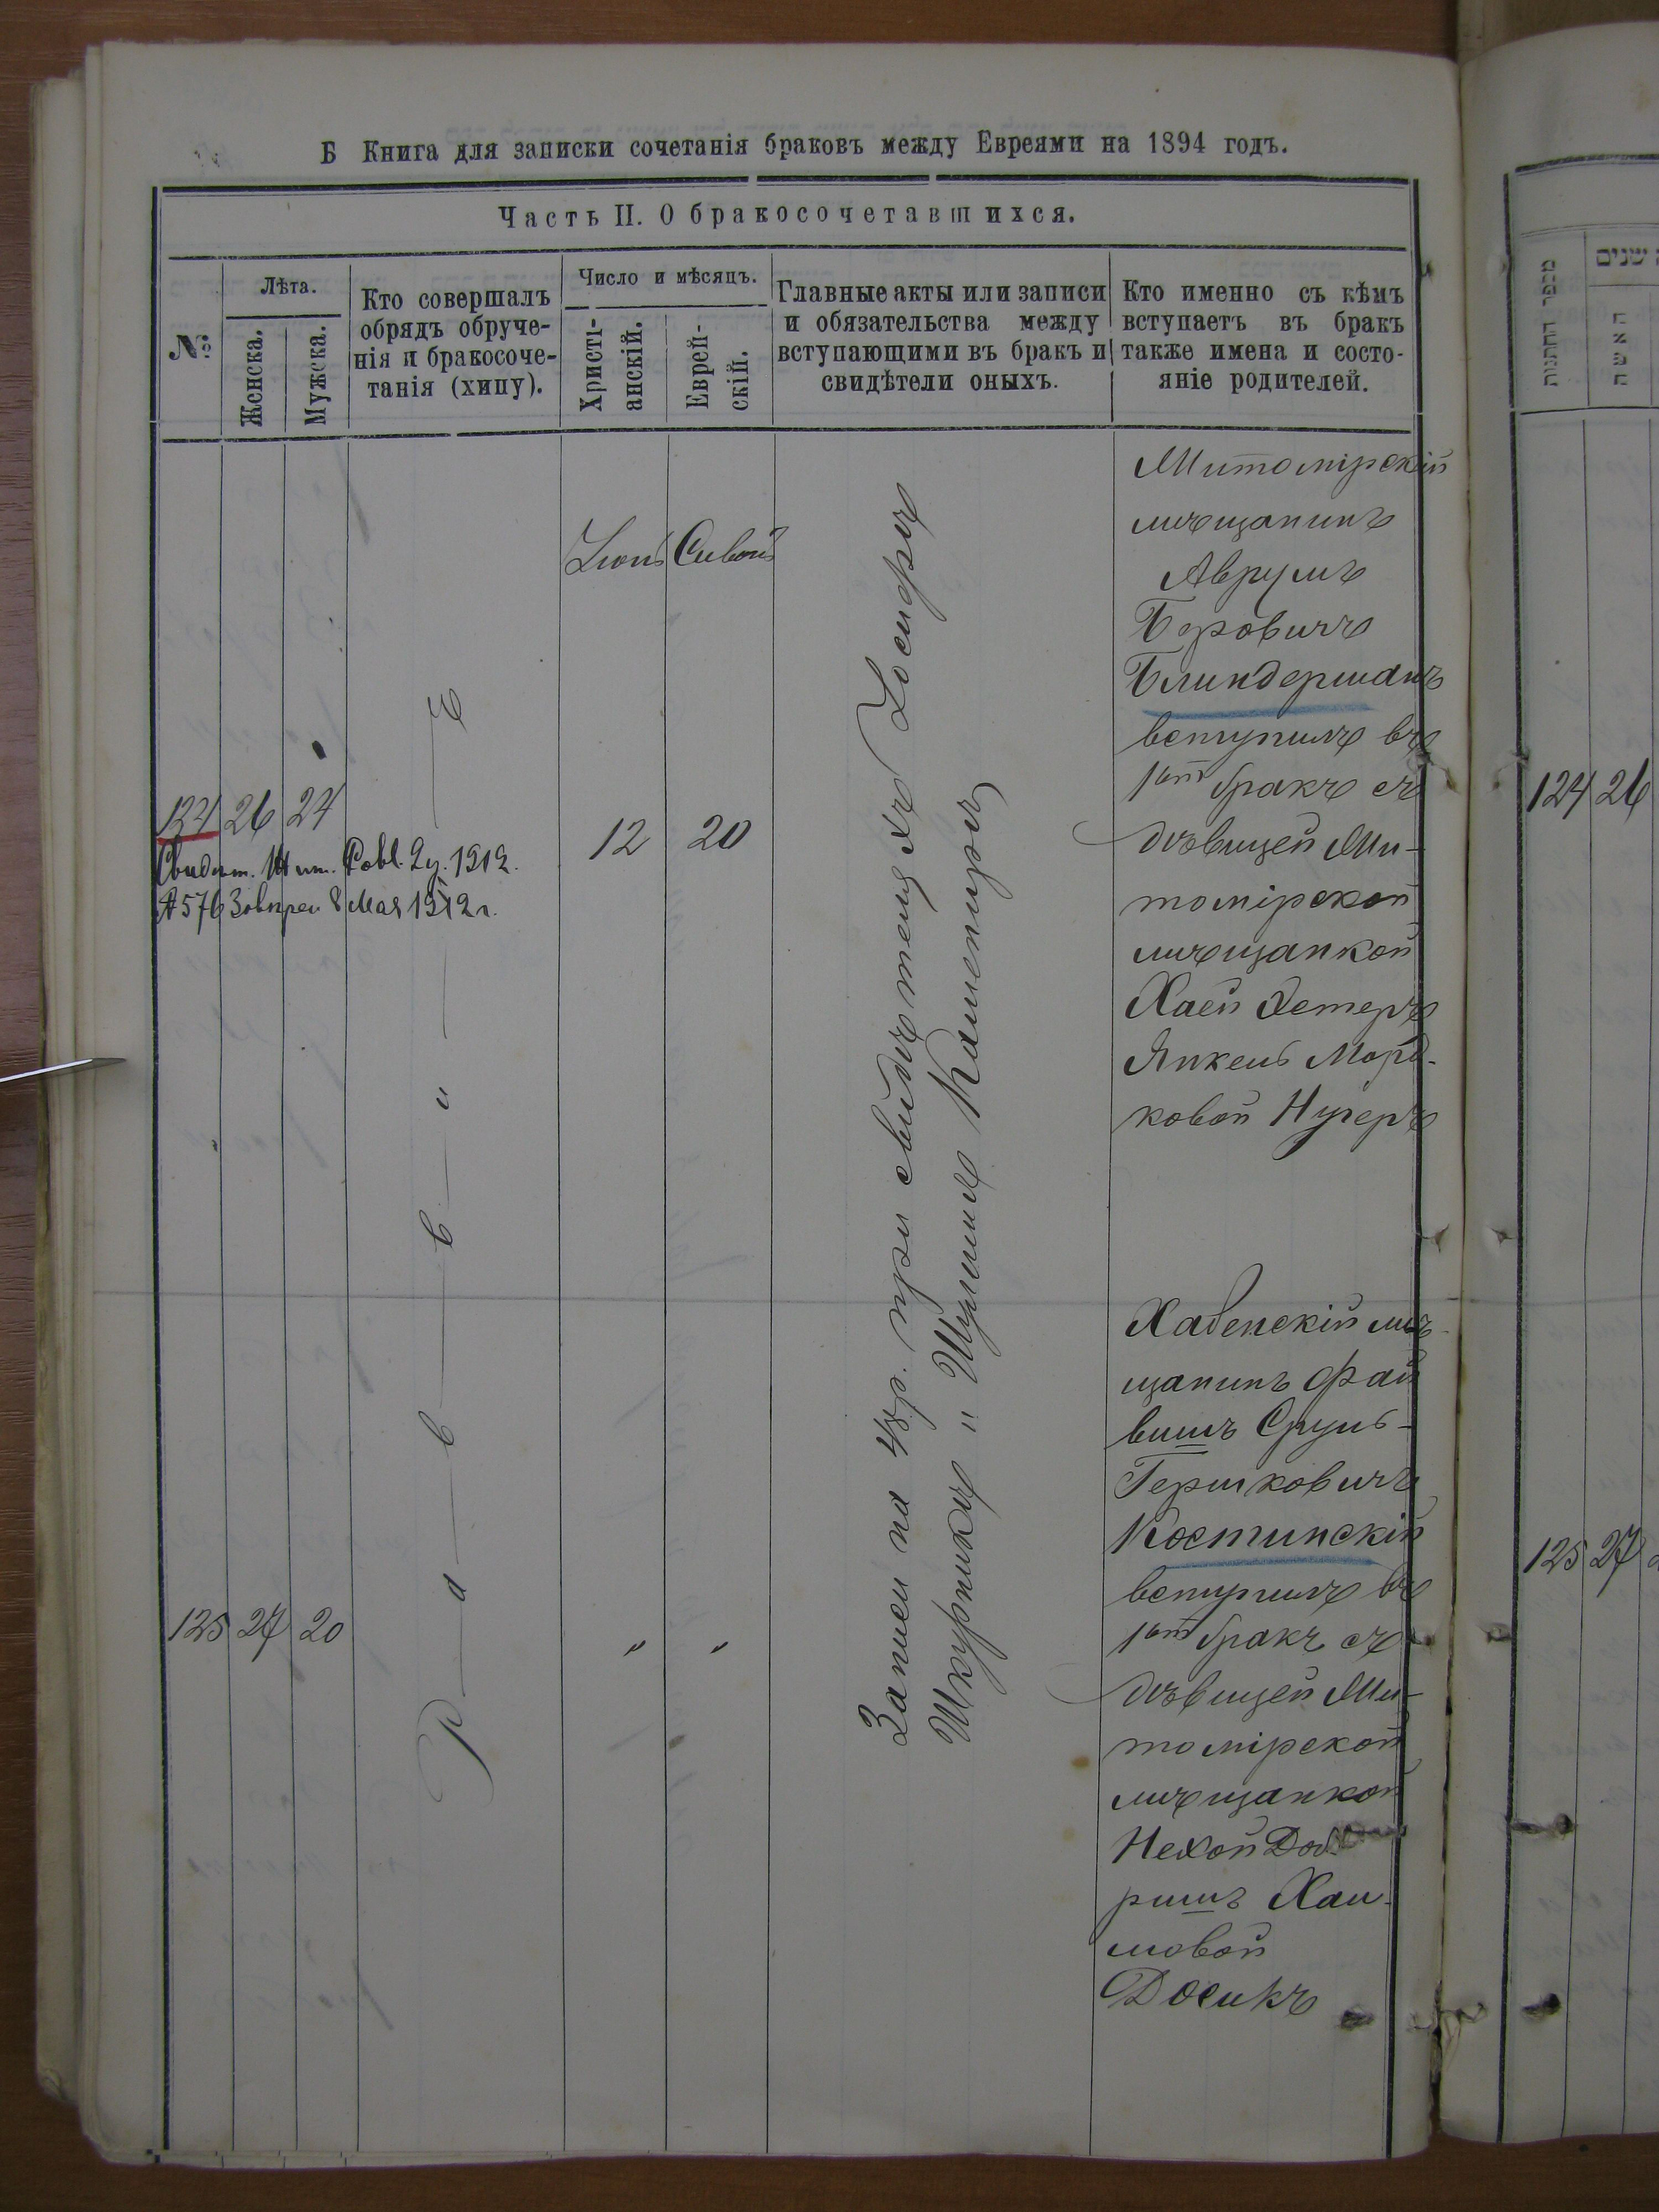 Б Книга для записки сочетанія браковъ между Евреями на 1894 годъ.
Часть II. О бракосочетавшихся.
№
Лѣта.
Женска.
Мужска.
Кто совершалъ
обрядъ обруче-
нія и бракосоче-
танія (хипу).
Число и мѣсяцъ.
Христі-
анскій.
Еврей-
скій.
Главные акты или записи
и обязательства между
вступающими въ бракъ и
свидѣтели оныхъ.
Кто именно съ кѣмъ
вступаетъ въ бракъ
также имена и состо-
яніе родителей.
Іюнь Сивонъ
124 26 24
12 20
8 Мая 1912 г.
Р а в в и н Е
Записи на 48р. при свидѣтеляхъ Іосифѣ
Шкурникѣ и Шулимѣ Каменирѣ
Житомірскій
мѣщанинъ
Аврумъ
Беровичъ
Блиндерманъ
вступилъ въ
1ый бракъ съ
дѣвицей Жи-
томірской
мѣщанкой
Хаей Эстеръ
Янкель Морд-
ковой Нугеръ
125 27 20
" "
Хабенскій мѣ-
щанинъ Фай
вишъ Сруль-
Гершковичъ
Костинскій
вступилъ въ
1ый бракъ съ
дѣвицей Жи-
томірской
мѣщанкой
Нехой Доб
ришъ Хаи-
мовой
Досикъ
מספר החתנות
שנים
האשה
124 26
125 27